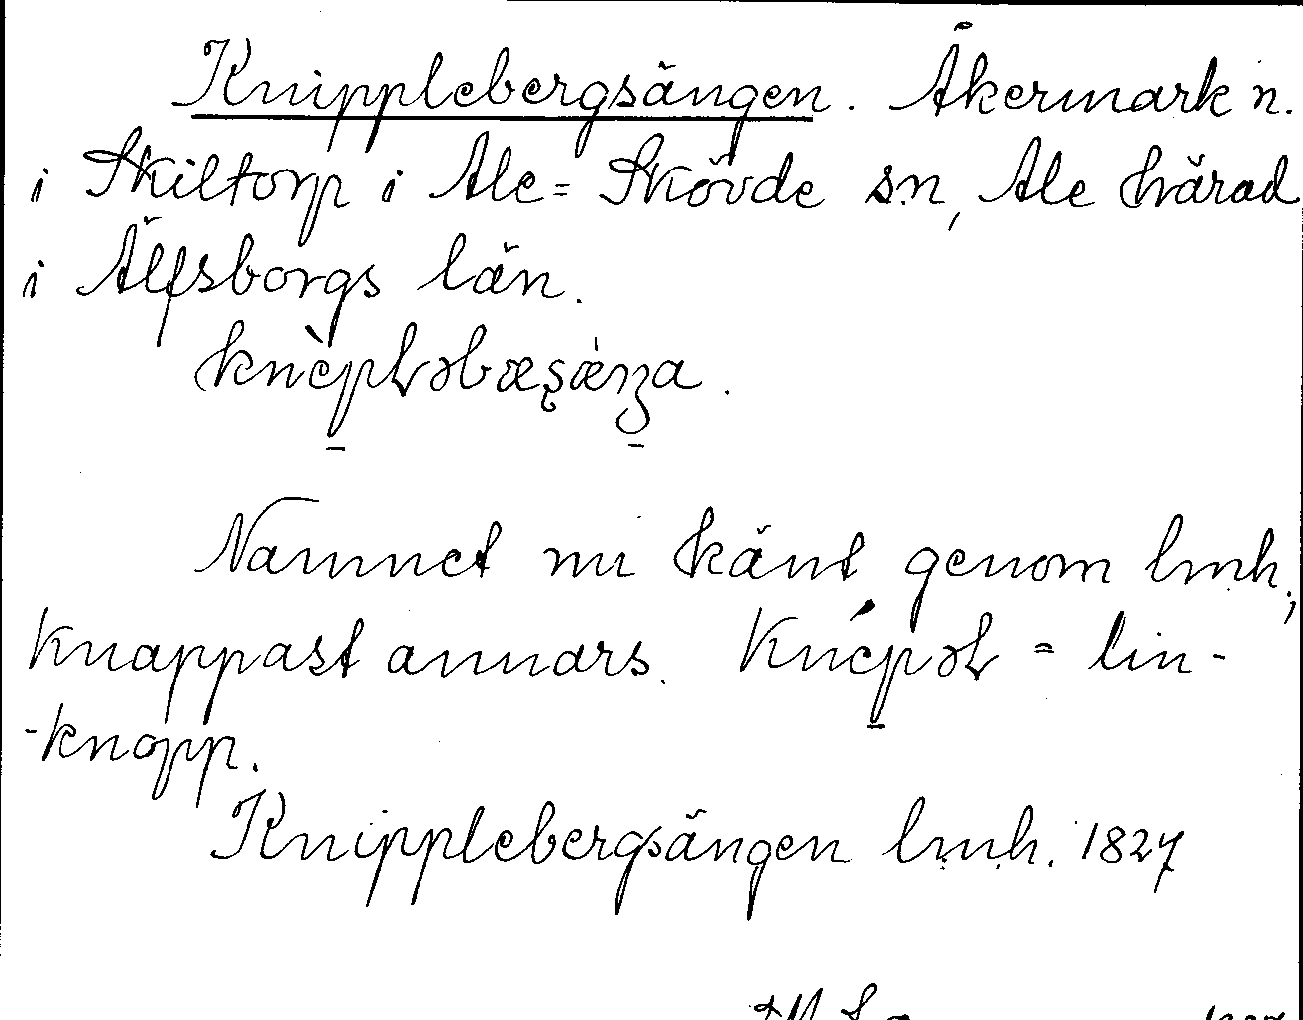 Knipplebergsängen. Åkermark n.
i Skiltorp i Ale=Skövde sn, Ale härad
i Älfsborgs län.
knèpłəbæʂæ̀ŋa.
Namnet nu känt genom lmh.,
knappast annars. Knépəł = lin-
-knopp.
Knipplebergsängen lmh. 1827